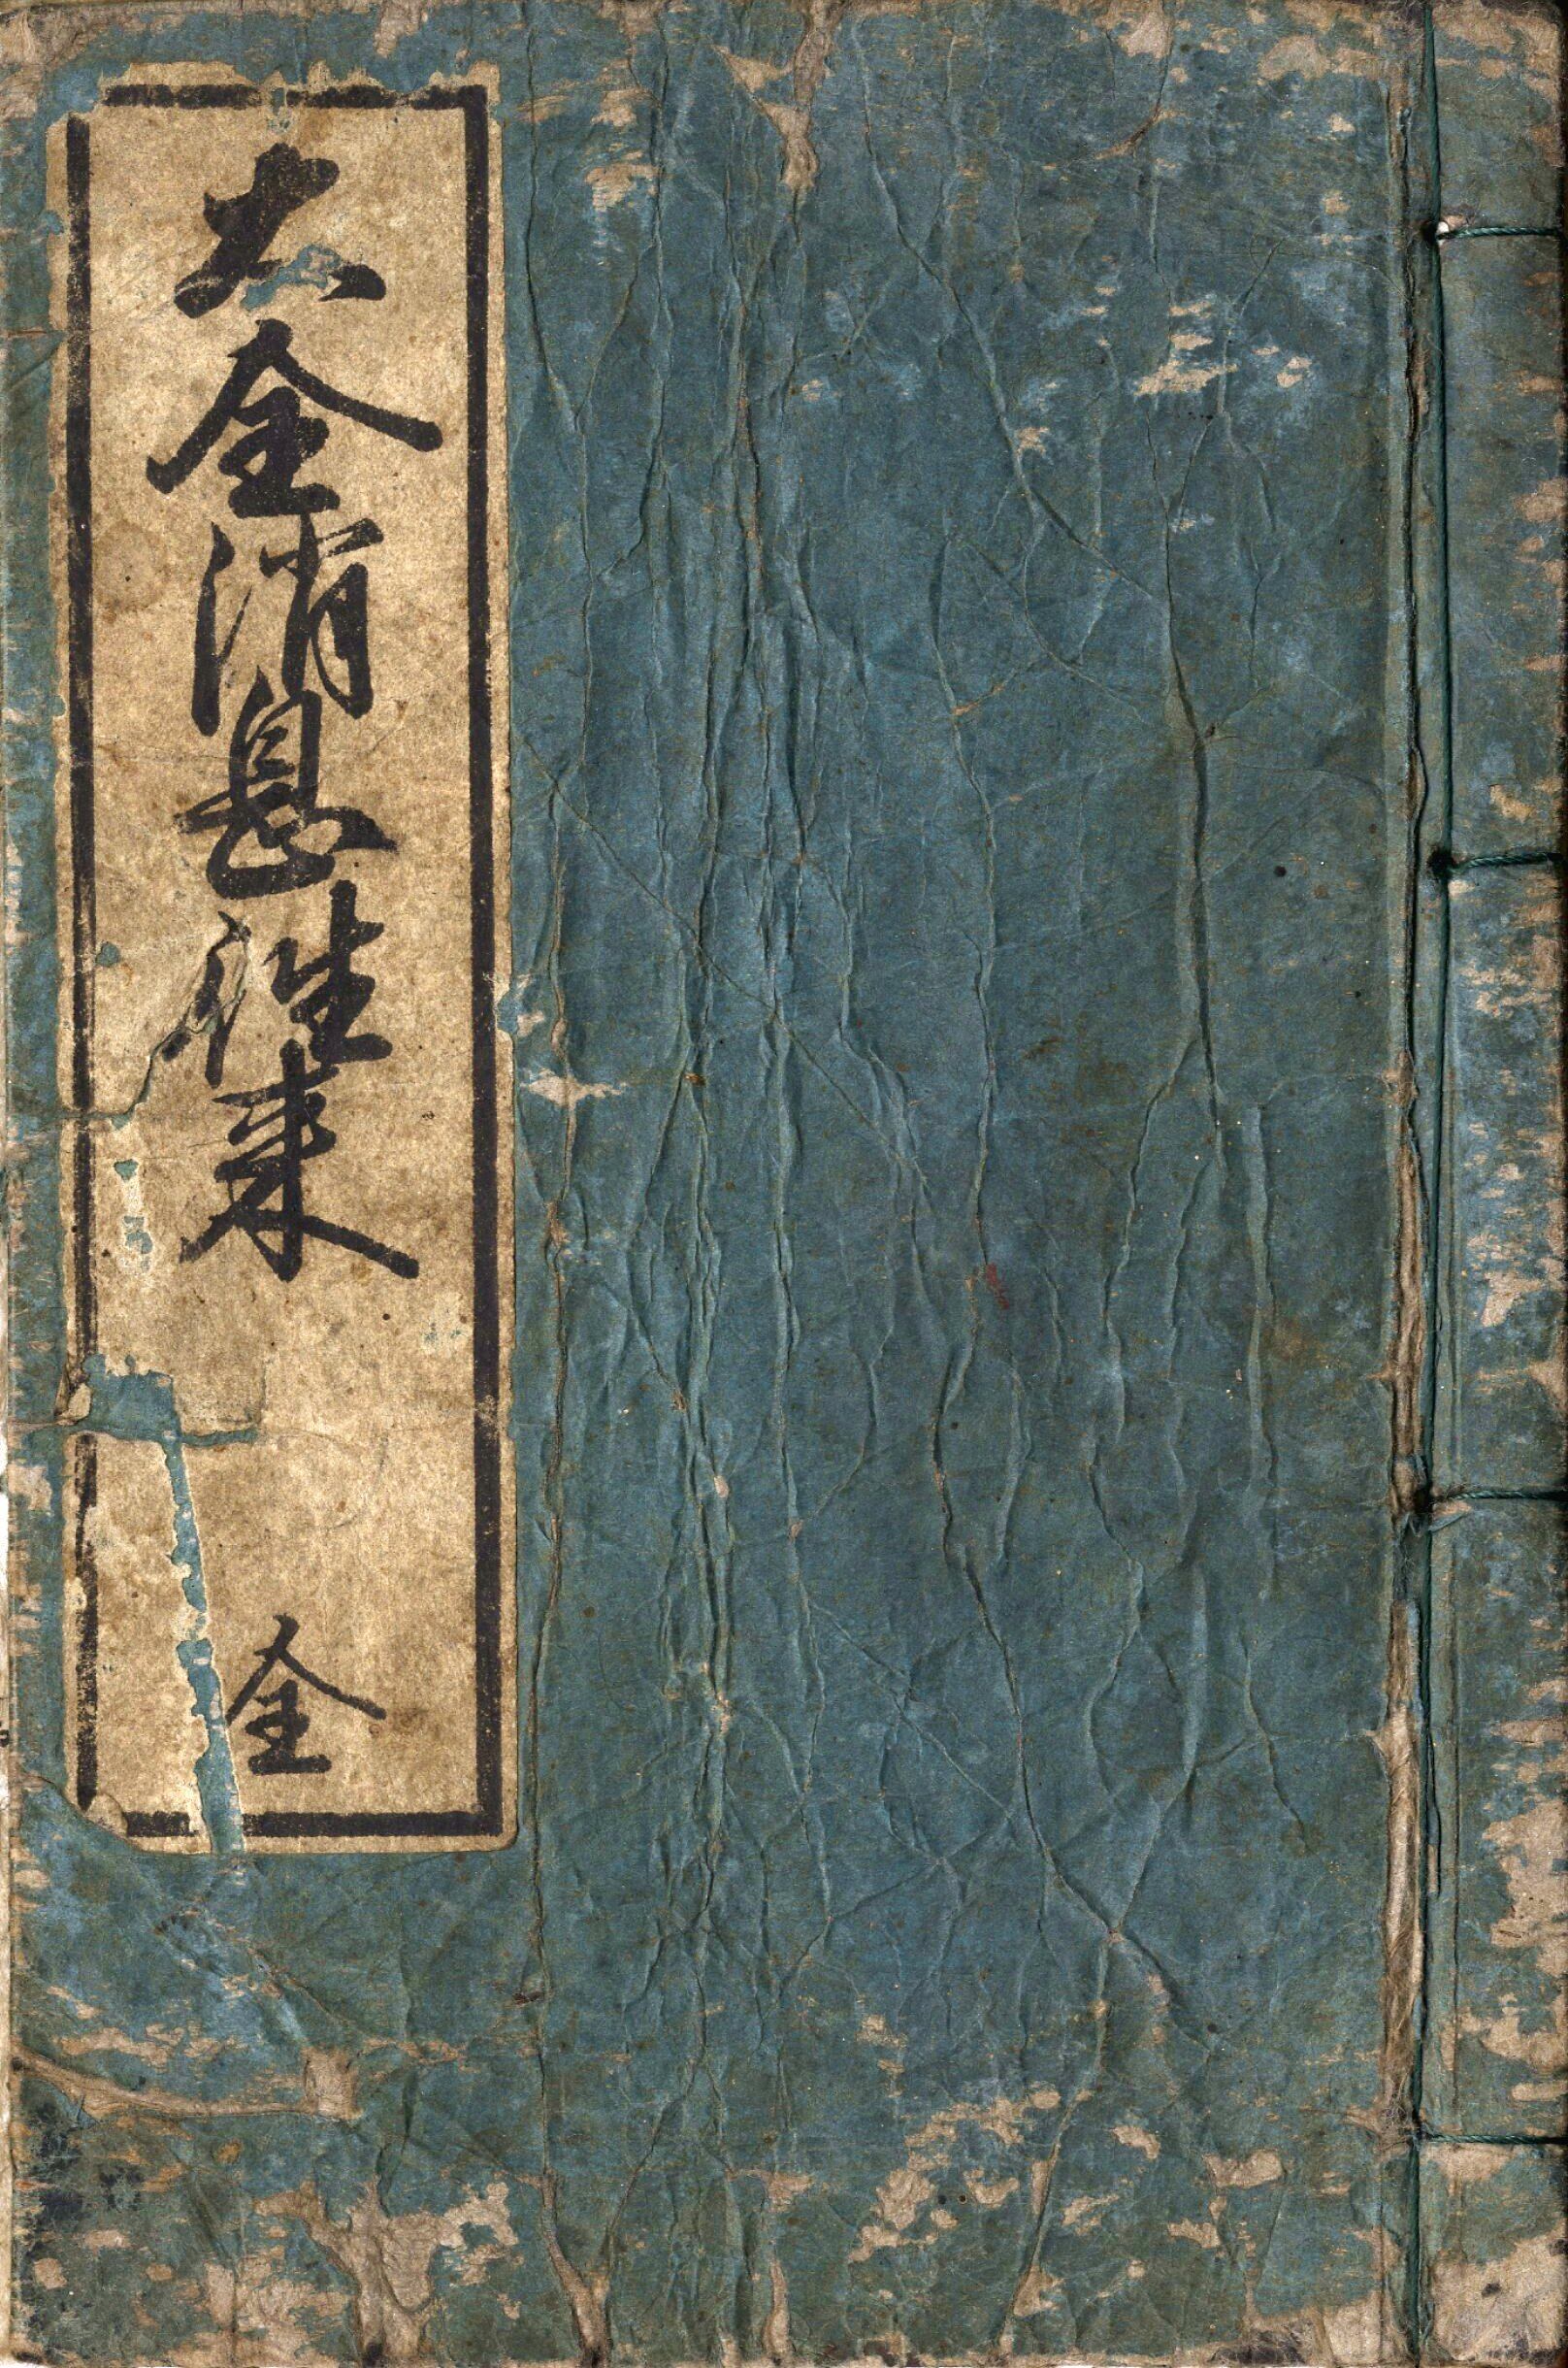 大全消息往来
全